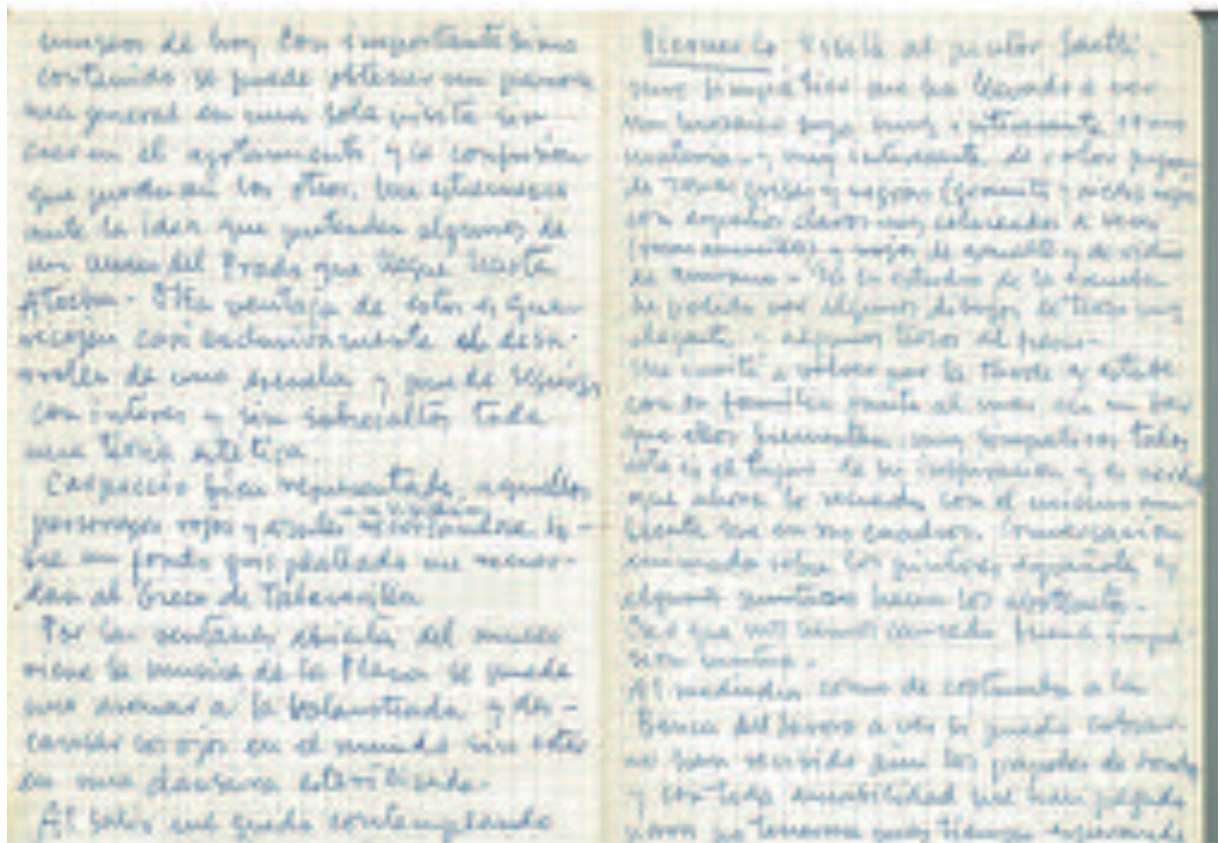 museos de hoy con importantísimo
contenido se puede obtener un panora
ma general en una sola visita sin
caer en el agotamiento y la confusion
que producen los otros. Me estremece
ante la idea que pretenden algunos de
un museo del Prado que llegue hasta
Atocha. Otra ventaja de estos es que
recogen casi exclusivamente el desa-
rrollo de una escuela y puede seguirse
con interes y sin sobresaltos toda
una teoria estetica.
Carpaccio bien representado, aquellos
personajes rojos y azules recortandose so-
bre un fondo gris plateado me recuer-
dan al Greco de Talavera
Por las ventanas abiertas del museo
viene la musica de la Plaza se puede
uno asomar a la balaustrada y des-
cansar los ojos en el mundo sin estar
en una clausura esterilizada.
Al salir me quedo contemplando
Visité al pintor
muy simpatico me ha llevado a ver
un mosaico suyo muy interesante como
materia y muy interesante de color
de rosas grises y negros (granito y
con espacios claros muy
y rojos de y de vidrio
de Murano. En su estudio de la escuela
he podido ver algunos dibujos de muy
elegante
Me invitó a volver por la tarde y estube
con su familia junto al mar en un bar
que ellos frecuentan muy simpaticos todos
este es el lugar de su inspiracion y es verdad
que ahora lo recuerdo con el mismo am
biente que en sus cuadros. Conversacion
animada sobre los pintores españoles y
hacia los abstractos.
Creo que nos hemos causado buena impre
sion
Al mediodia como de costumbre a la
Banca del Lavoro a ver si puedo cobrar
no han recibido aun los papeles de
y con toda amabilidad me han pagado
para no tenerme mas tiempo esperando